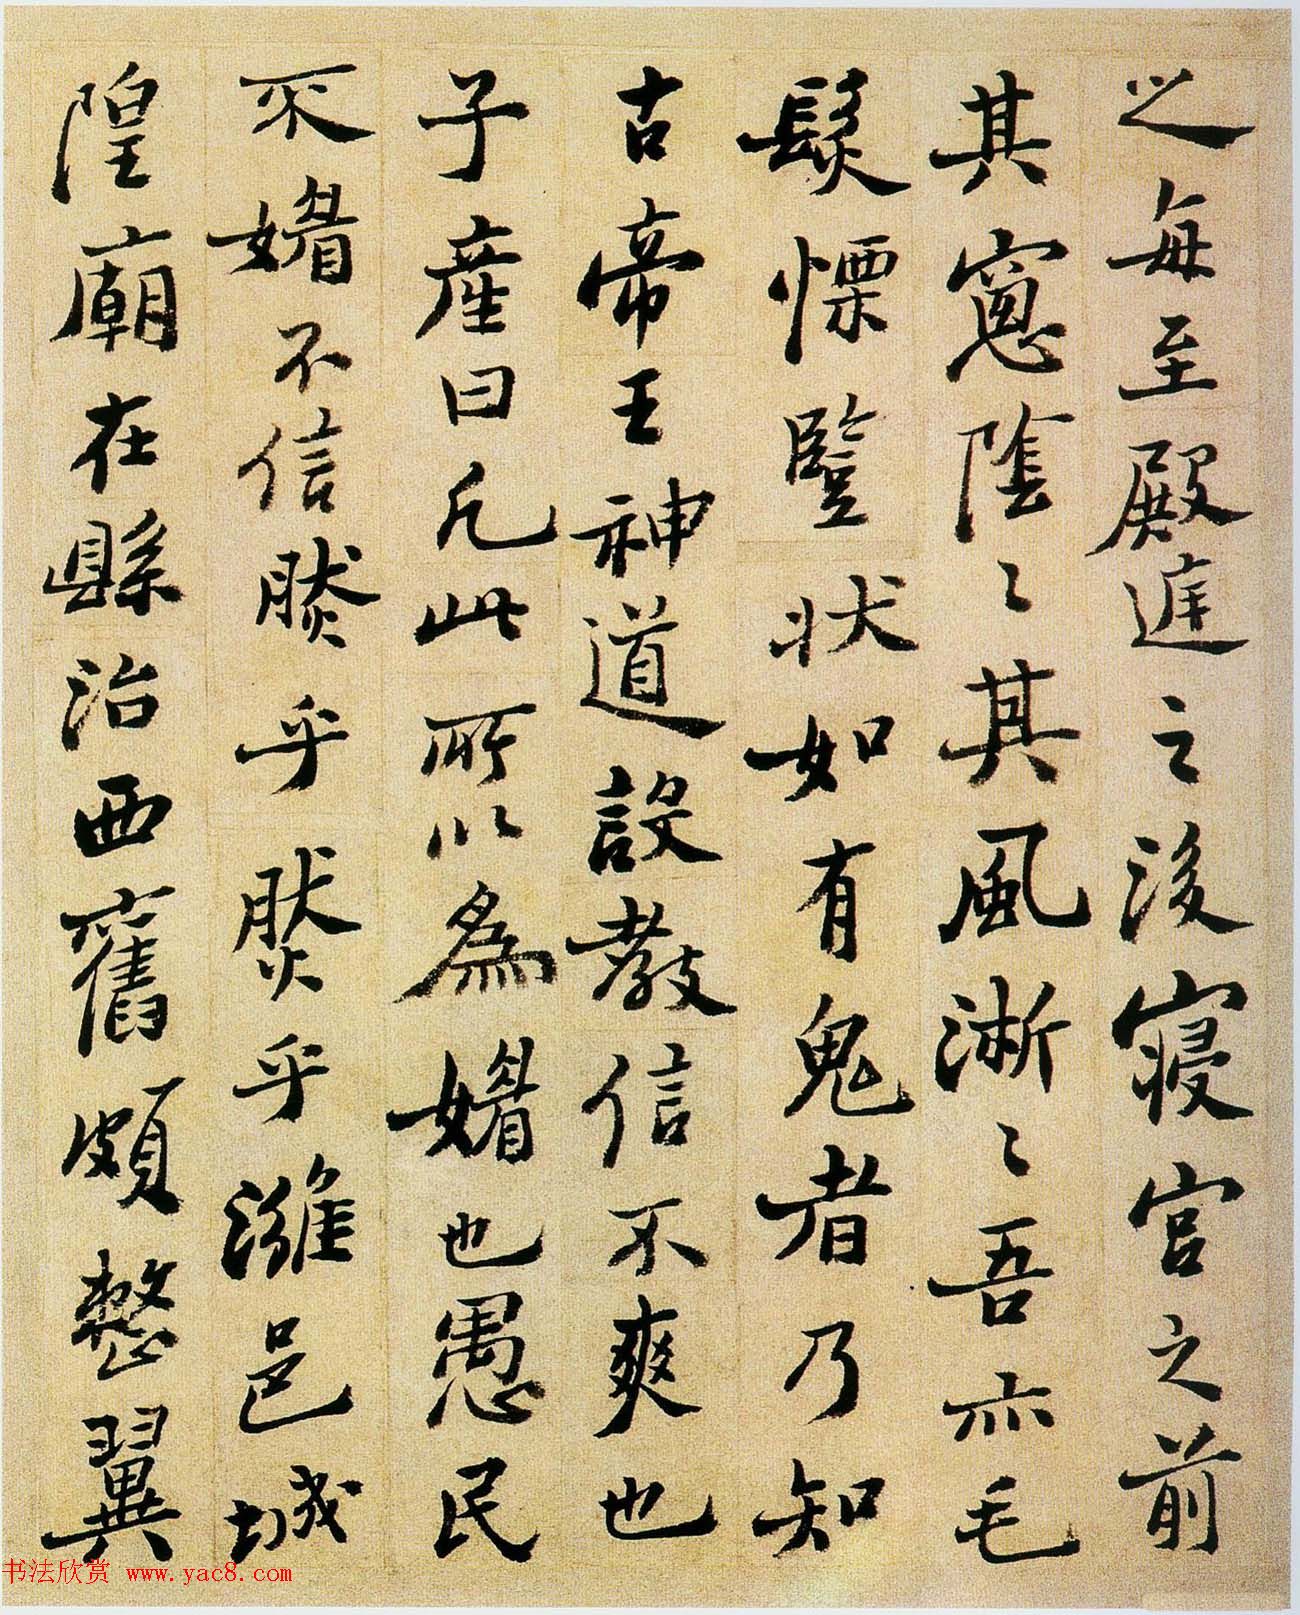 之每至殿庭之後寢宮之前
其窻陰〻其風淅〻吾亦毛
髮慄豎狀如有鬼者乃知
古帝王神道設教信不爽也
子產曰凡此所以為媚也愚民
不媚不信然乎然乎濰邑城
隍廟在縣治西舊頗整翼
书法欣赏 www.yac8.com